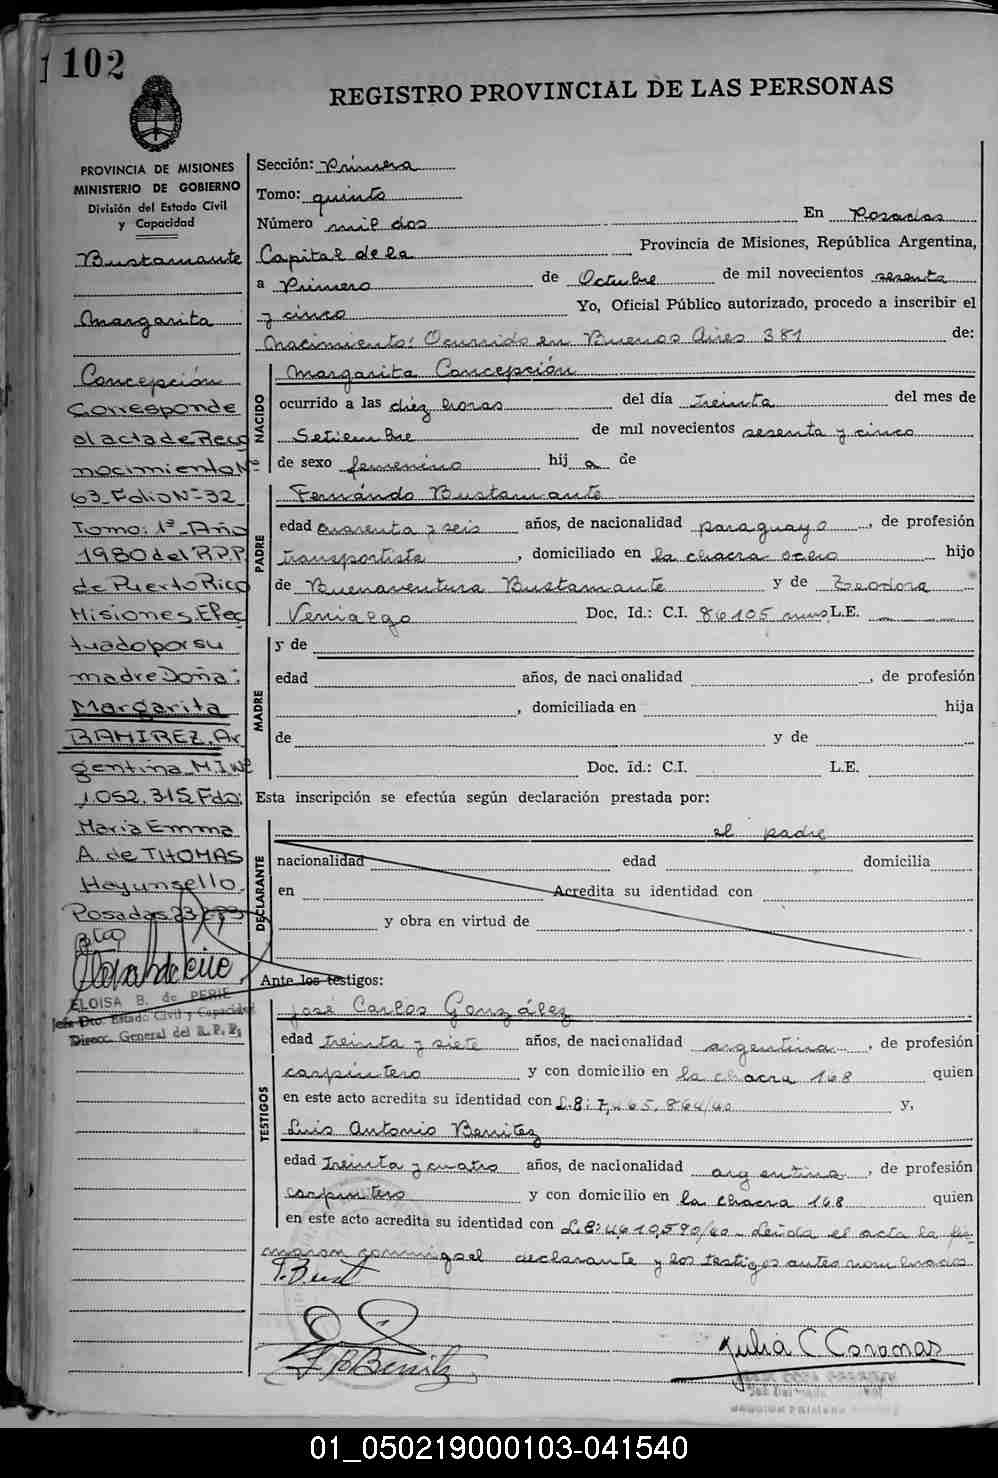 102
REGISTRO PROVINCIAL DE LAS PERSONAS
PROVINCIA DE MISIONES
MINISTERIO DE GOBIERNO
División del Estado Civil
y Capacidad
Bustamante
Margarita
Concepción
Corresponde
al acta de Reco
nocimiento Nº
63 Folio Nº 32
Tomo: 1º Año
1980 del R.P.P.
de Puerto Rico
Misiones, Efec
tuado por su
madre Doña:
Margarita
RAMIREZ, Ar
gentina M.I Nº
1.052.315 Fdo:
Maria Emma
A. de THOMAS
Hay un sello.
Posadas
ELOISA B. de PERIE
Jefe Dto. Estado Civil y Capacidad
Direcc. General del R. P. P.
Sección: Primera
Tomo: quinto
Número mil dos En Posadas
Capital de la Provincia de Misiones, República Argentina,
a Primero de Octubre de mil novecientos sesenta
y cinco Yo, Oficial Público autorizado, procedo a inscribir el
Nacimiento: Ocurrido en Buenos Aires 381 de:
NACIDO
Margarita Concepción
ocurrido a las diez horas del día treinta del mes de
Setiembre de mil novecientos sesenta y cinco
de sexo femenino hij a de
PADRE
Fernándo Bustamante
edad cuarenta y seis años, de nacionalidad paraguayo, de profesión
transportista, domiciliado en la chacra ocho hijo
de Buenaventura Bustamante y de Teodora
Venialgo Doc. Id.: C.I. 86105 mns L.E.
MADRE
y de
edad años, de nacionalidad, de profesión
, domiciliada en hija
de y de
Doc. Id.: C.I. L.E.
Esta inscripción se efectúa según declaración prestada por:
el padre
DECLARANTE
nacionalidad edad domicilia
en Acredita su identidad con
y obra en virtud de
Ante los testigos:
TESTIGOS
José Carlos González
edad treinta y siete años, de nacionalidad argentina, de profesión
carpintero y con domicilio en la chacra 168 quien
en este acto acredita su identidad con L.E: y,
Luis Antonio Benitez
edad treinta y cuatro años, de nacionalidad argentina, de profesión
carpintero y con domicilio en la chacra 168 quien
en este acto acredita su identidad con L.E: Leida el acta la fir-
maron conmigo el declarante y los testigos antes nombrados
F. Bust
Benitz
Julia C Coronas
01_050219000103-041540